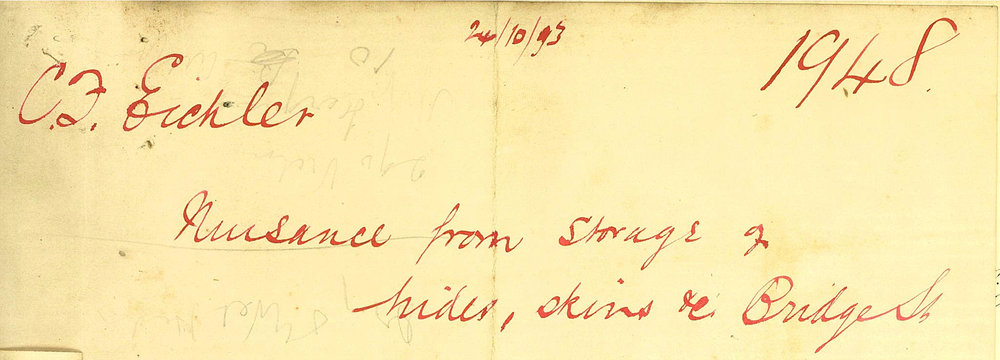 24/10/93
1948
C.F. Eichler
Nuisance from storage of
hides, skins &c Bridge St